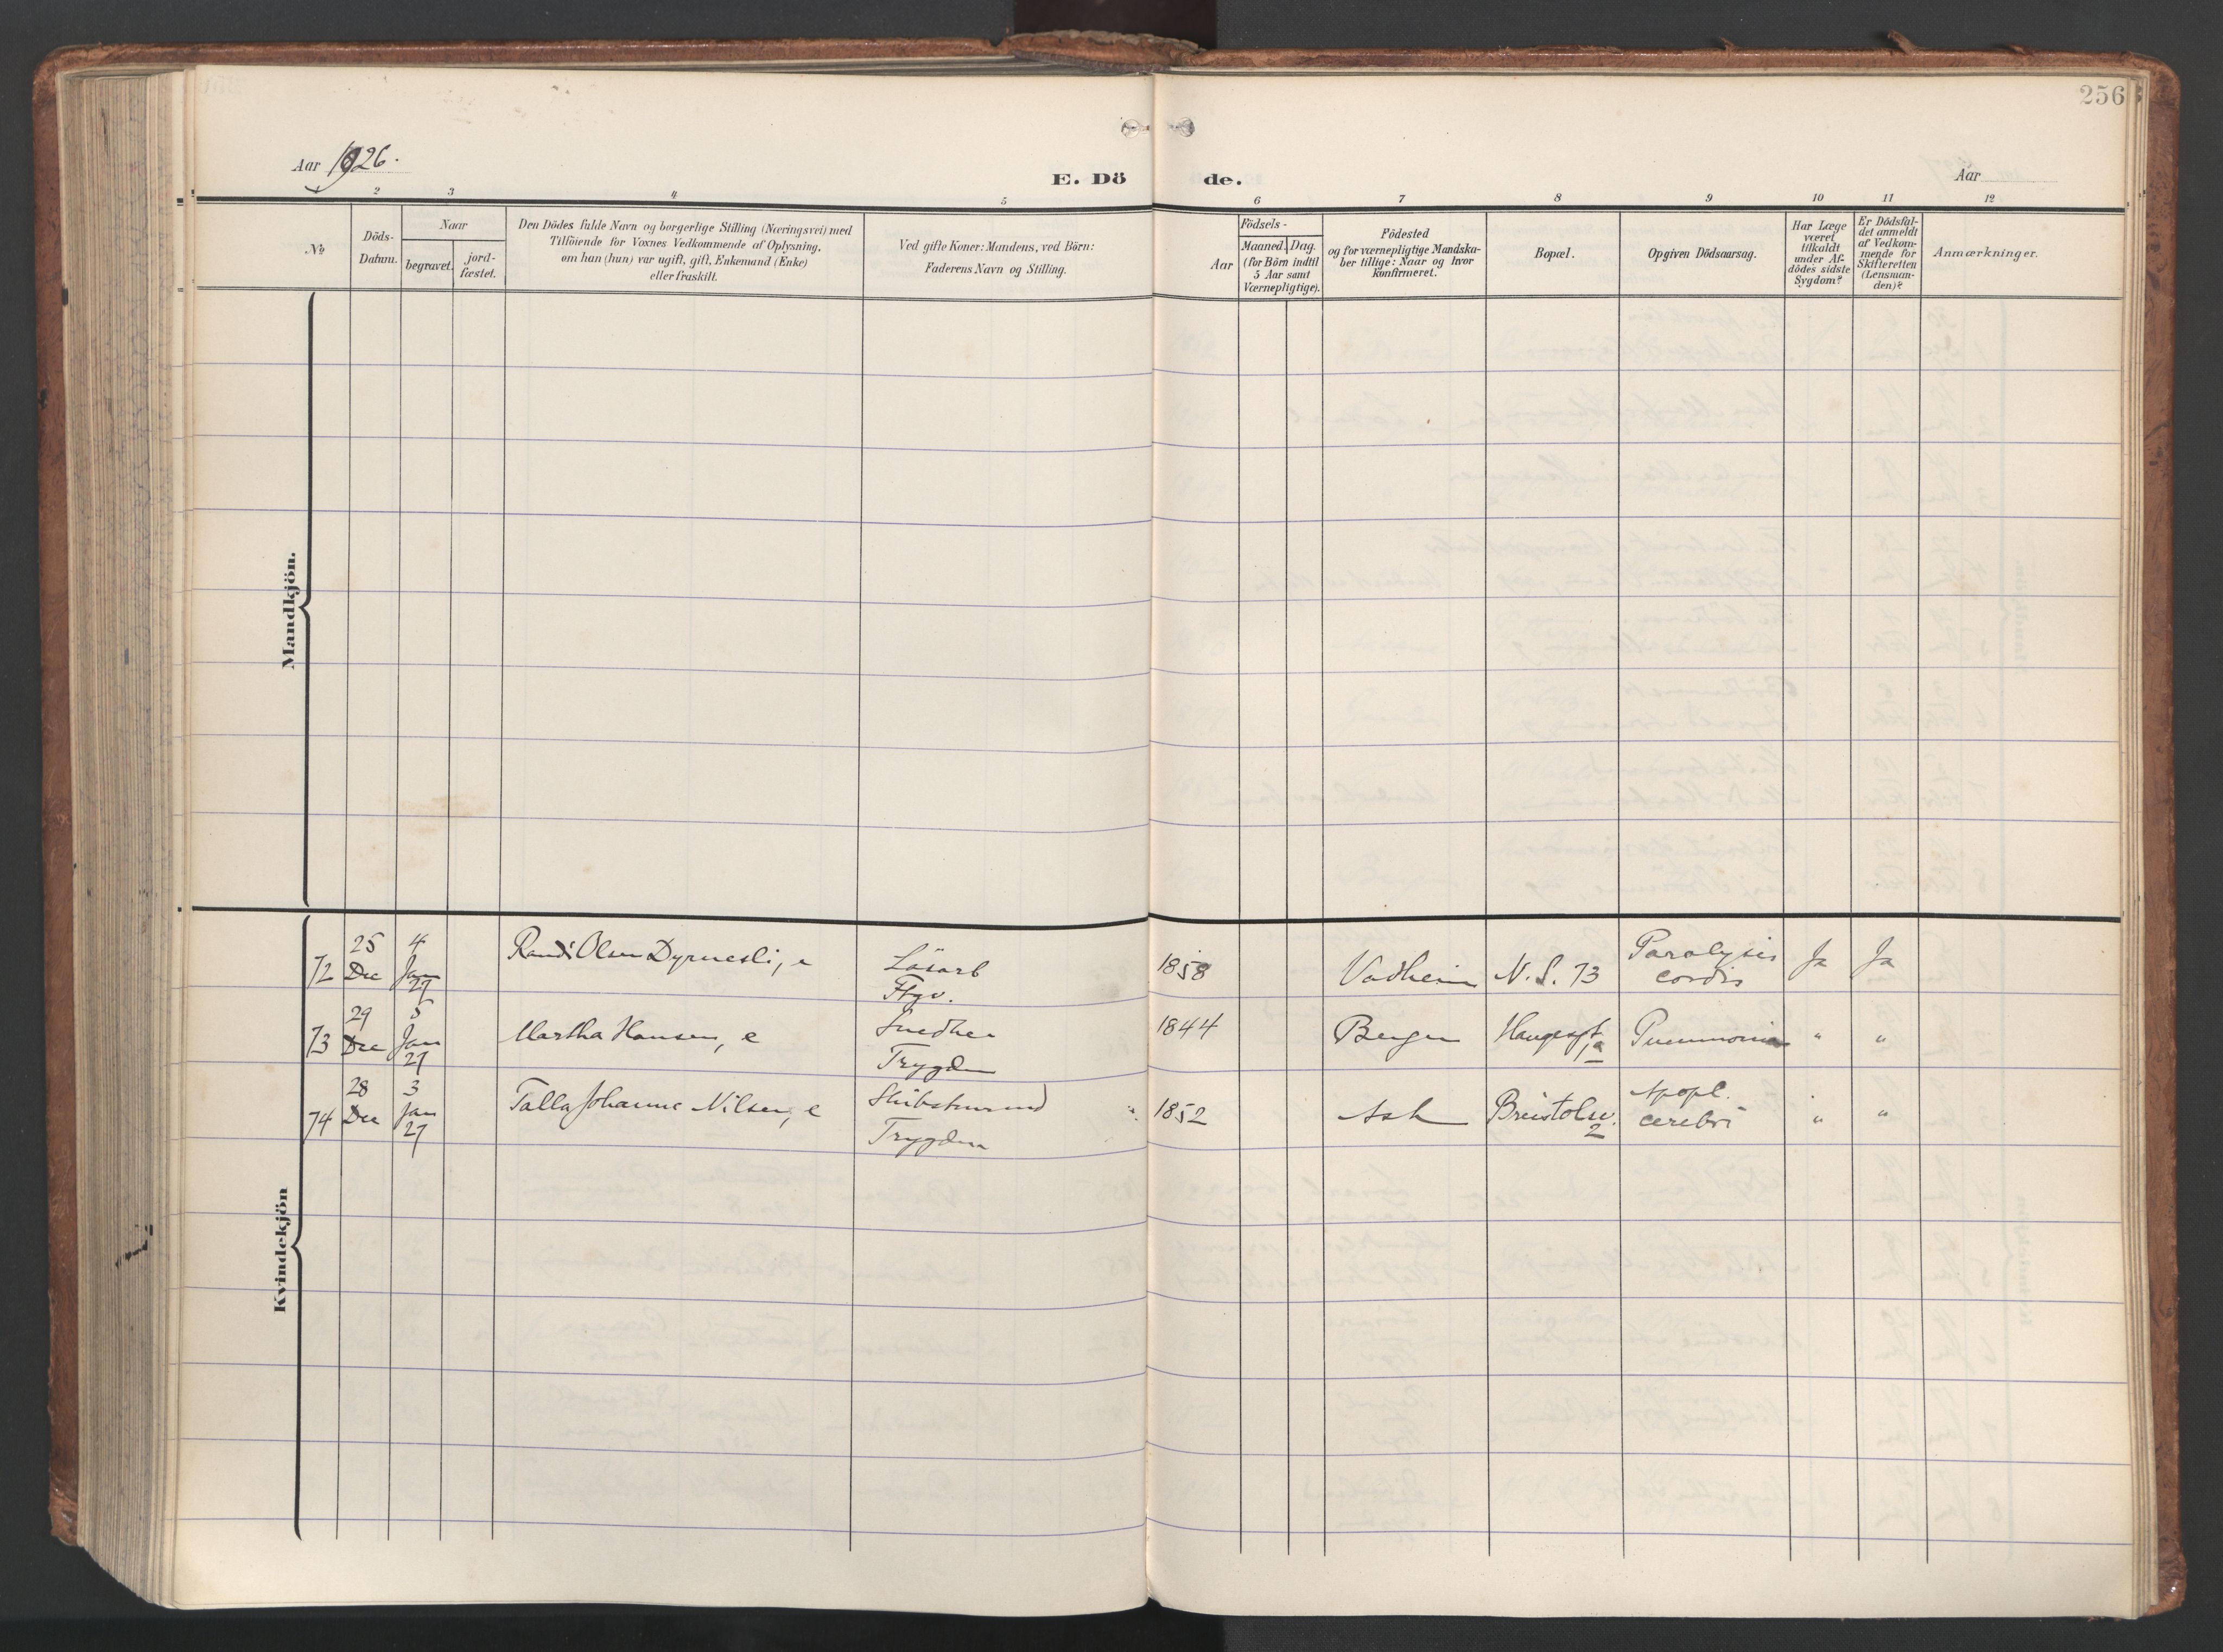 256
Aar 1926.
E. Dö de.
Aar
2 3 4 5 6 7 8 9 10 11 12
№
Döds-
Datum.
Naar
begravet.
jord-
fæstet.
Den Dödes fulde Navn og borgerlige Stilling (Næringsvei) med
Tilföiende for Voxnes Vedkommende af Oplysning,
om han (hun) var ugift, gift, Enkemand (Enke)
eller fraskilt.
Ved gifte Koner: Mandens, ved Börn:
Faderens Navn og Stilling.
Födsels-
Aar
Maaned. Dag.
(for Börn indtil
5 Aar samt
Værnepligtige).
Födested
og for værnepligtige Mandska-
ber tillige: Naar og hvor
konfirmeret.
Bopæl.
Opgiven Dödsaarsag.
Har Læge
været
tilkaldt
under Af-
dödes sidste
Sygdom?
Er Dödsfal-
det anmeldt
af Vedkom-
mende for
Skifteretten
(Lensman-
den)?
Anmærkninger.
Mandkjön.
Kvindekjön
72
25
Dec
4
Jan
27
Randi Olsen Dyrnesli, e
Lösarb
Fhgv.
1858
Vadheim
N. S. 73
Paralysis
cordis
Ja
Ja
73
29
Dec
5
Jan
27
Martha Hansen, e
Snedker
Trygden
1844
Bergen
1a
Pneumonia
"
"
74
28
Dec
3
Jan
27
Talla Johanne Nilsen, e
Skibstømmd
Trygden
1852
Ask
Breistolsv.
2
Apopl.
cerebri
"
"